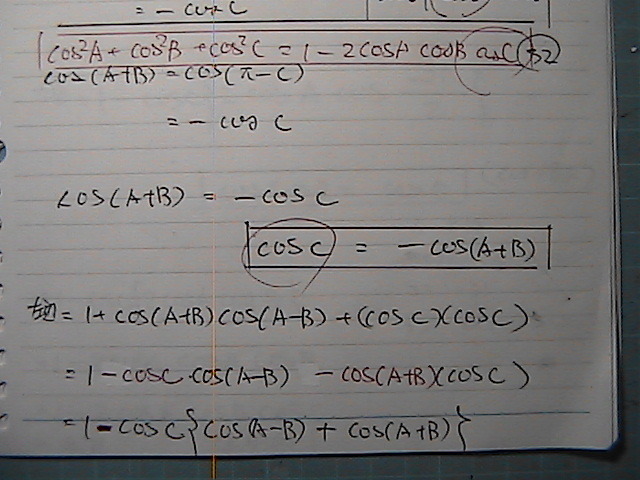 = - cos C
cos²A + cos²B + cos²C = 1 - 2 cos A cos B cos C
cos (A+B) = cos (π - C)
= - cos C
cos (A+B) = - cos C
cos C = - cos(A+B)
= 1 + cos(A+B) cos(A-B) + (cos C)(cos C)
= 1 - cos C · cos(A-B) - cos(A+B)(cos C)
= 1 - cos C { cos(A-B) + cos(A+B) }